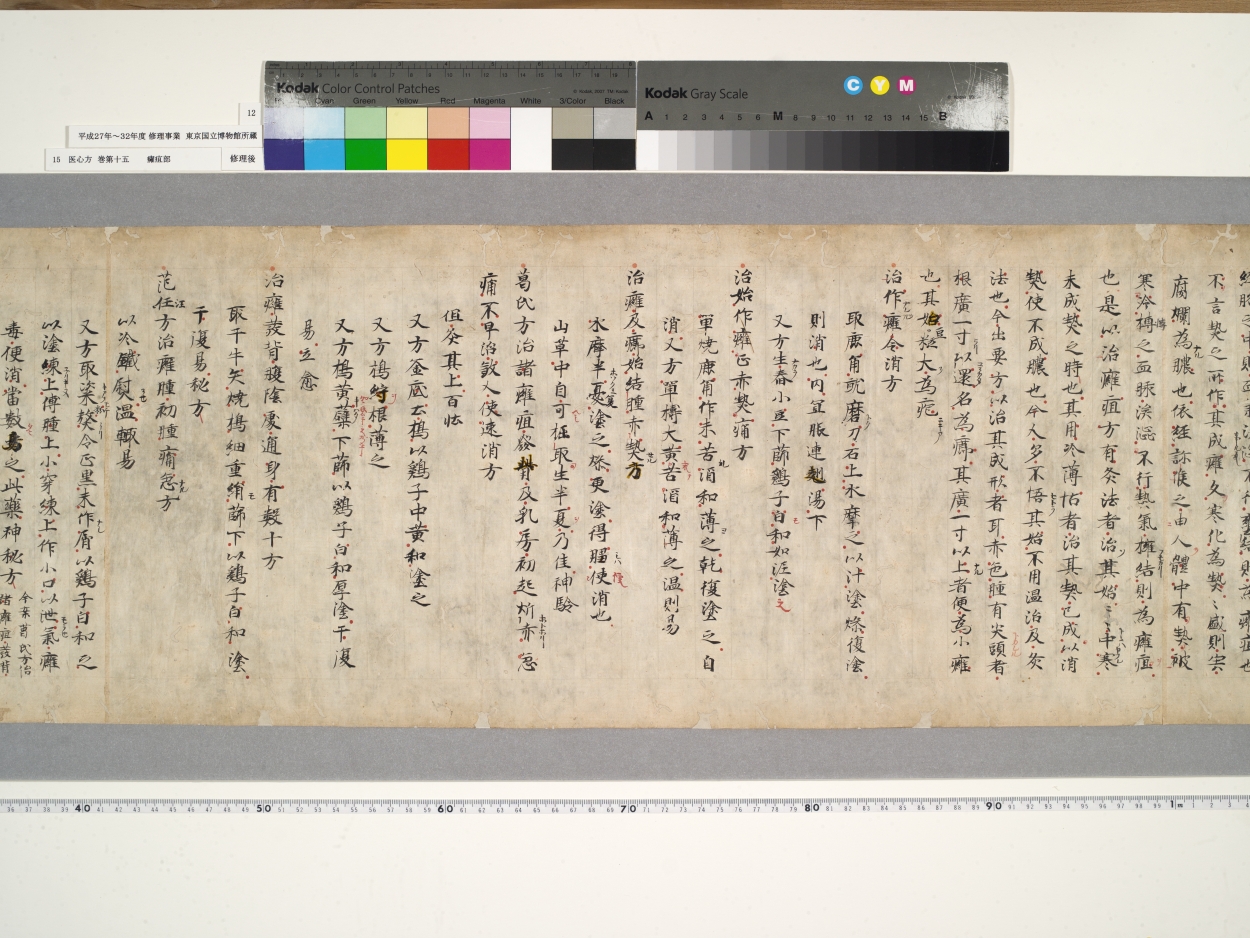 Kodak Color Control Patches
Blue Cyan Green Yellow Red Magenta White 3/Color Black
Kodak Gray Scale
C Y M
A 1 2 3 4 5 6 M 8 9 10 11 12 13 14 15 B
12
平成27年～32年度 修理事業 東京国立博物館所蔵
15 医心方 巻第十五 癰疽部 修理後
不言熱之所作其成癰久寒化為熱〻盛則
腐爛為膿也依
寒冷搏之血脈不行熱氣癰結則為癰疽
也是以治癰疽方有灸法者治其始〻中寒
未成熱之時也其用冷薄怙者治其熱已成以消
熱使不成膿也今人多不悟其始不用温治及灸
法也今出要方以治其成形者耳赤色腫有尖頭者
根廣一寸以還名為癤其廣一寸以上者便為小癰
也其
治作癰令消方
取鹿角就磨刀石上水摩之以汁塗燥復塗
則消也内宜服連翹湯下
又方生舂小豆下篩鷄子白和如泥塗之
治始作癰正赤熱痛方
單燒鹿角作末苦酒和薄之乾復塗之自
消又方單搗大黄苦酒和薄之温則易
治癰及癤始結腫赤熱方
水摩半夏塗之燥更塗得
山草中自可掘取生半夏乃佳神驗
葛氏方治諸癰疽發背及乳房初起焮赤急
痛不早治殺人使速消方
但灸其上百炷
又方釜底土搗以鷄子中黄和塗之
又方搗苧根薄之
又方搗黄蘗下篩以鷄子白和厚塗干復
易立愈
治癰發背腹陰慶通身有數十方
取干牛矢燒搗細重絹篩下以鷄子白和塗
干復易秘方
范汪方治癰腫初腫痛急方
以冷鐵熨温輙易
又方取粢熬令正黒末作屑以鷄子白和之
以塗練上傅腫上小穿練上作小口以泄氣癰
毒便消當數易之此藥神秘方
36 37 38 39 40 41 42 43 44 45 46 47 48 49 50 51 52 53 54 55 56 57 58 59 60 61 62 63 64 65 66 67 68 69 70 71 72 73 74 75 76 77 78 79 80 81 82 83 84 85 86 87 88 89 90 91 92 93 94 95 96 97 98 99 1m 1 2 3